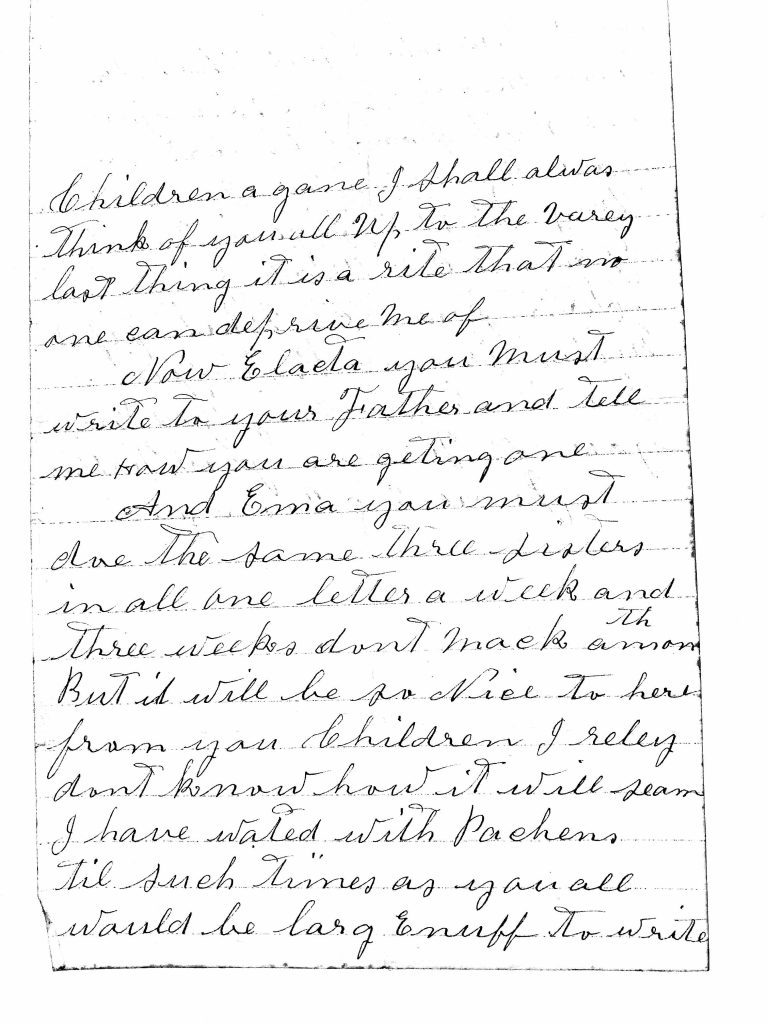 Children a gane I shall alwas
think of you all Up to the varey
last thing it is a rite that no
one can deprive Me of
Now Elacta you Must
write to your Father and tell
me How you are geting one
And Ema you must
due the same three sisters
in all one letter a week and
three weeks dont mack a mon th
But it will be so Nice to here
from you Children I reley
dont know how it will seam
I have wated with Pachens
til such times as you all
would be larg Enuff to write